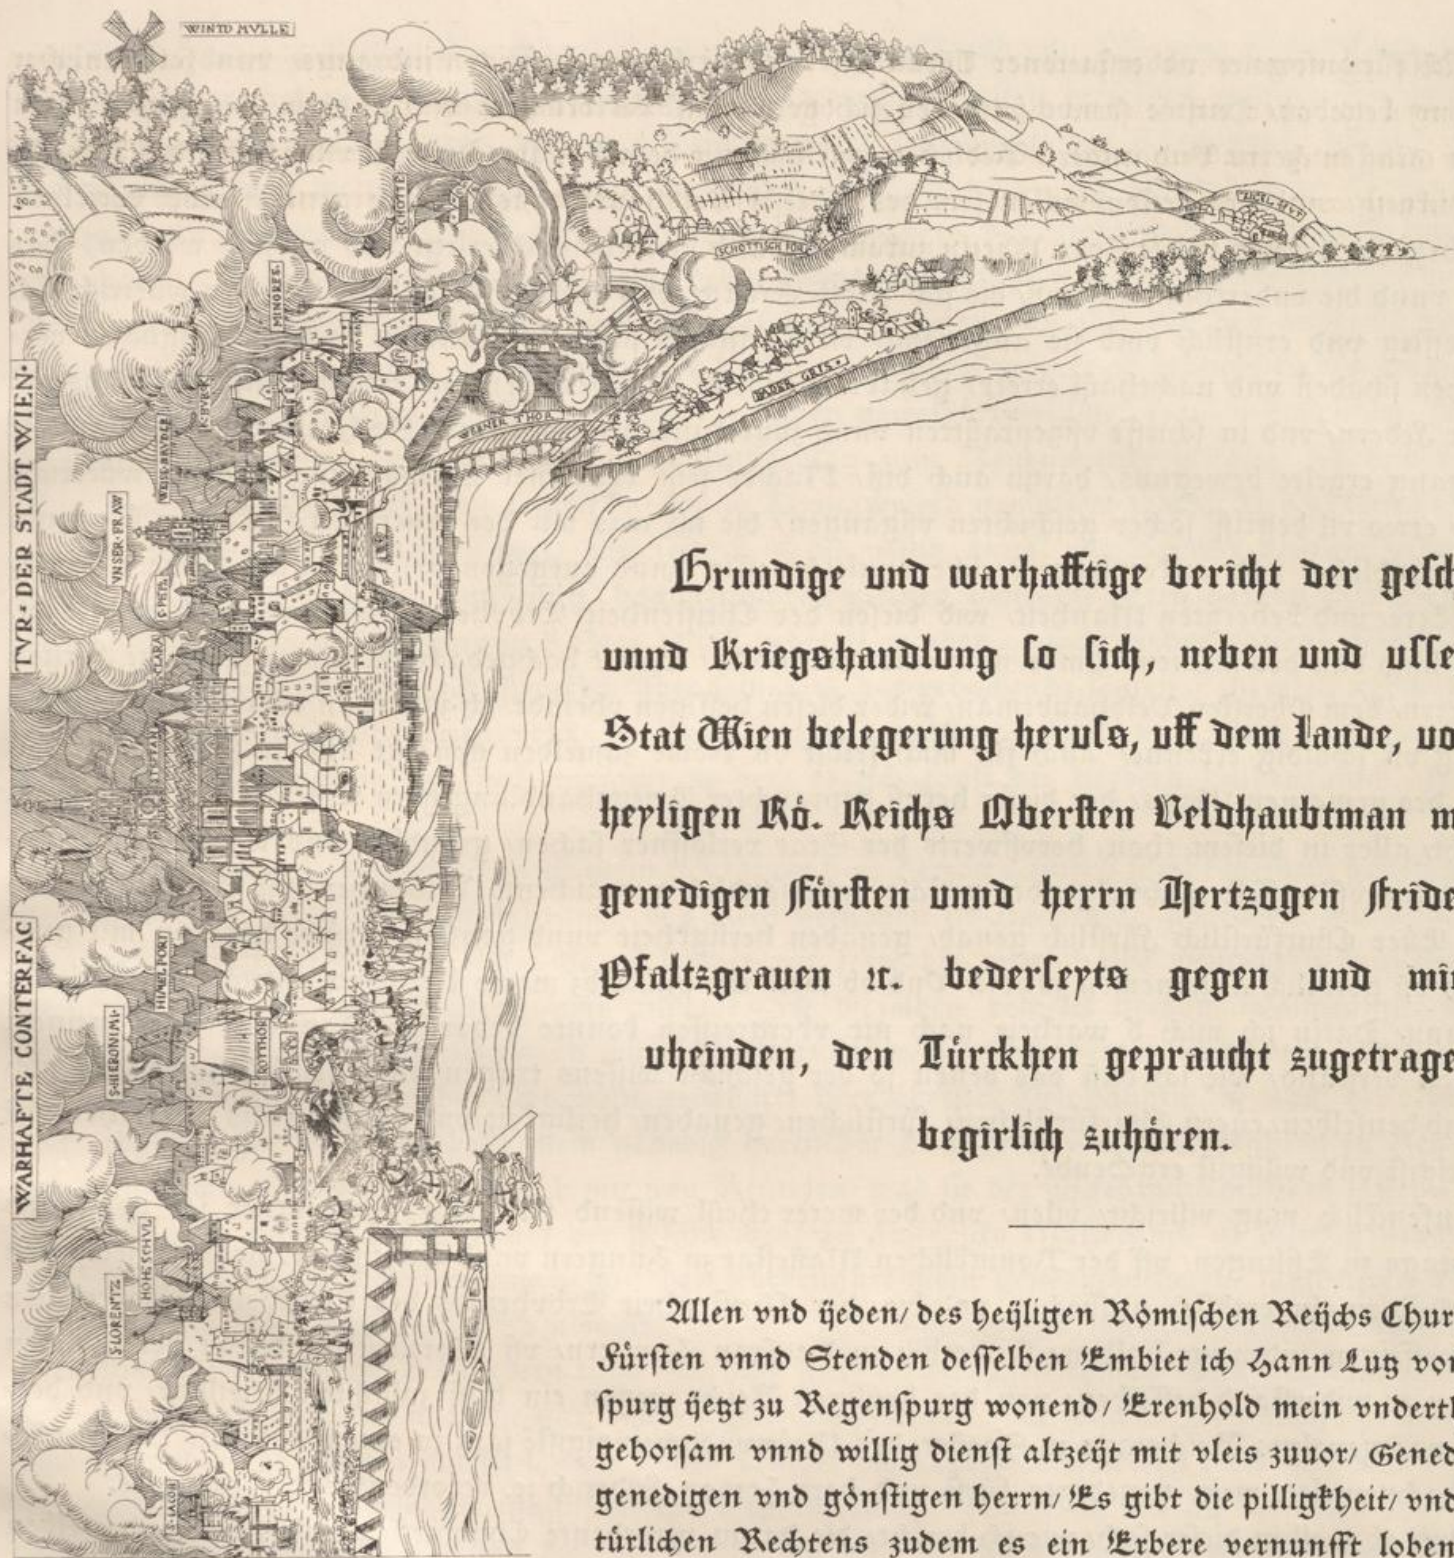 WINTD MVLLE
SCHOTTE
MINORES
SCHOTTISCH POR
BADER GRIS
WERNER THOR
K·BVRG
WEISS BRVDER
VNSER·FRAW
S·PETR
CLARA
S·STEFFAN
HIMEL PORT
S·HIERONIMI·
ROTTHOR
HOHE SCHVL
S·LORENTZ
S·IACOB
WARHAFTE CONTERFAC
TVR· DER STADT WIEN·
Grundige und warhafftige bericht der gesch
unnd Kriegshandlung so sich, neben und usse
Stat Wien belegerung heruss, uff dem Lande, vo
heyligen Rö. Reichs Obersten Veldhaubtman m
genedigen Fürsten unnd herrn Hertzogen Fride
Pfaltzgrauen ꝛc. bederseyts gegen und mit
vheinden, den Türckhen gepraucht zugetrage
begirlich zuhören.
Allen vnd ÿeden/ des heÿligen Römischen Reÿchs Chur
Fürsten vnnd Stenden desselben Embiet ich Hann Lutz von
spurg ÿetzt zu Regenspurg wonend/ Erenhold mein vnderth
gehorsam vnnd willig dienst altzeÿt mit vleis zuuor/ Gened
genedigen vnd gönstigen herrn/ Es gibt die pilligkheit/ vnd
türlichen Rechtens zudem es ein Erbere vernunfft loben